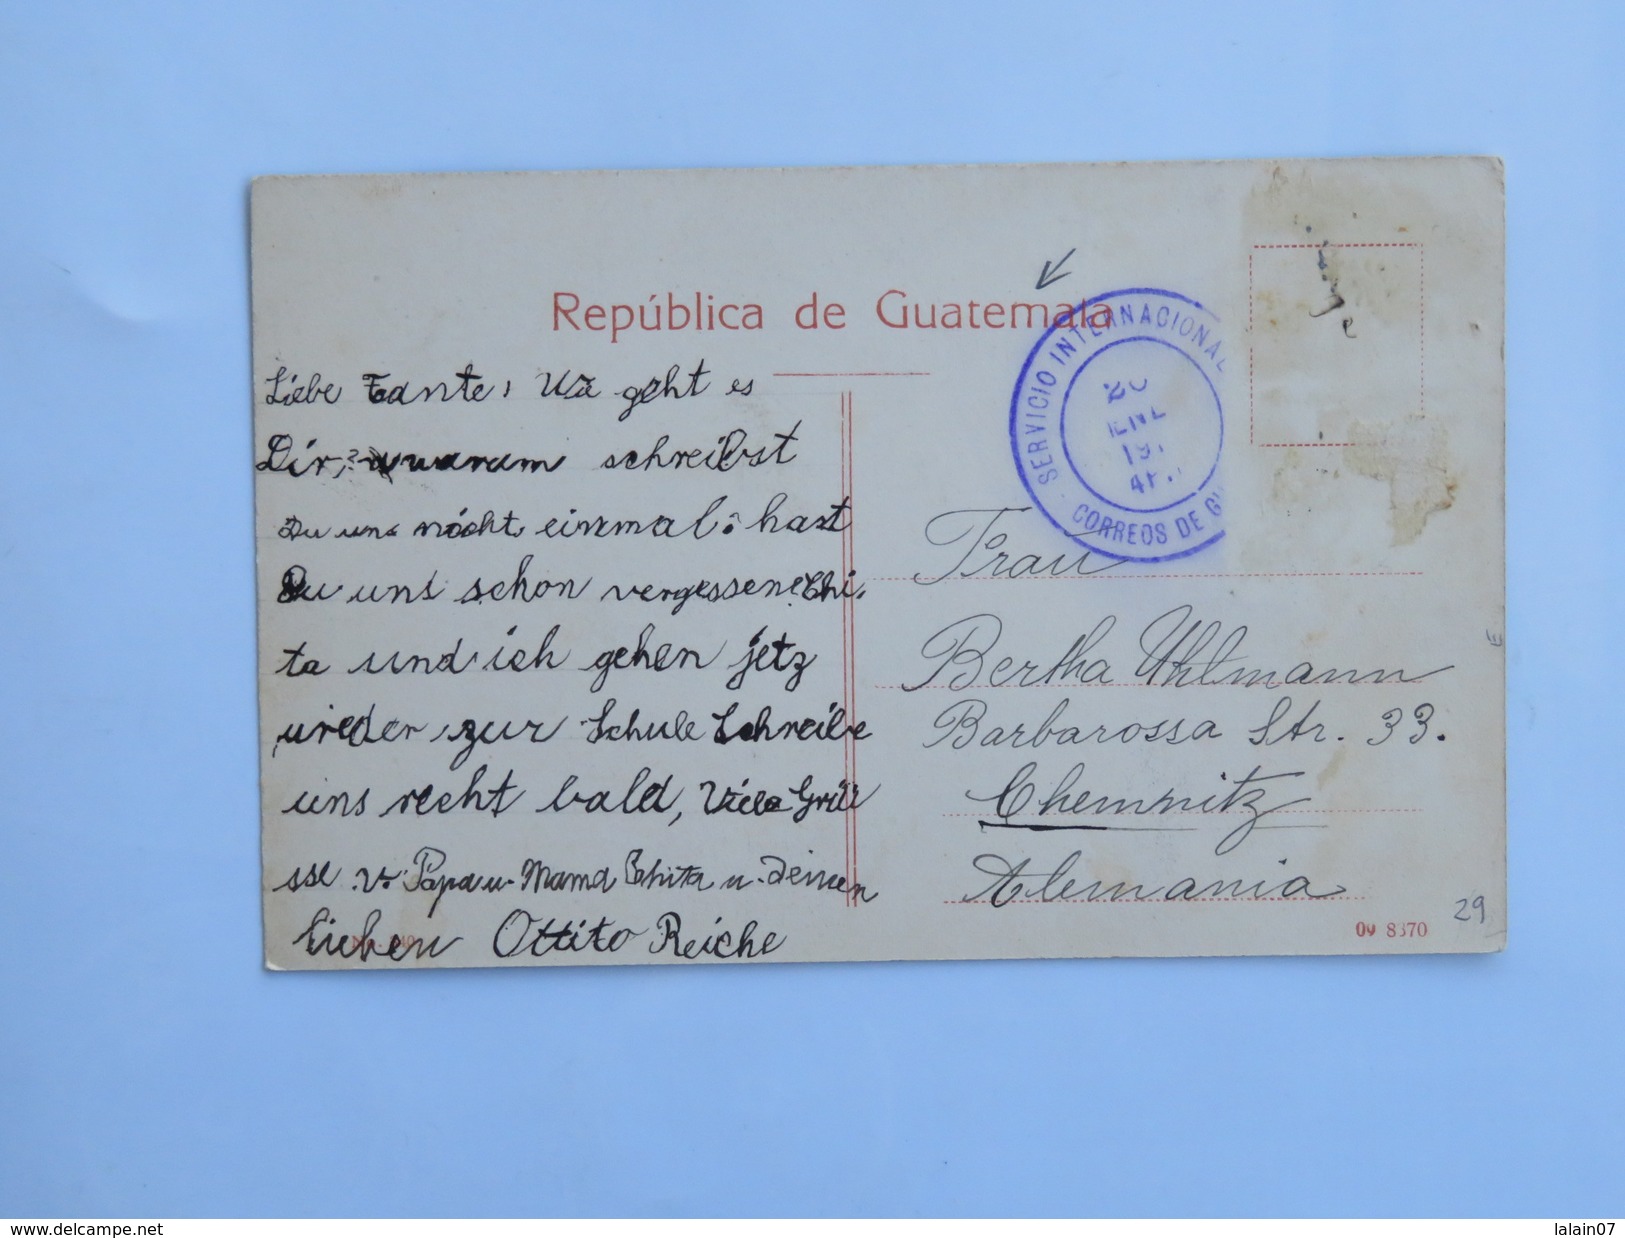 República de Guatemala
SERVICIO INTERNACIONAL
CORREOS DE GU
Liebe Tante! Wie geht es
Dir, warum schreibst
Du uns nicht einmal? hast
Du uns schon vergessen? Chi-
ta und ich gehen jetz
wieder zur Schule Schreibe
uns recht bald, Viele Grüü
sse v. Papa u. Mama Chita u. Deinen
lieben Ottito Reiche
Frau
Bertha Uhlmann
Barbarossa Str. 33.
Chemnitz
Alemania
29
09 8370
www.delcampe.net
lalain07